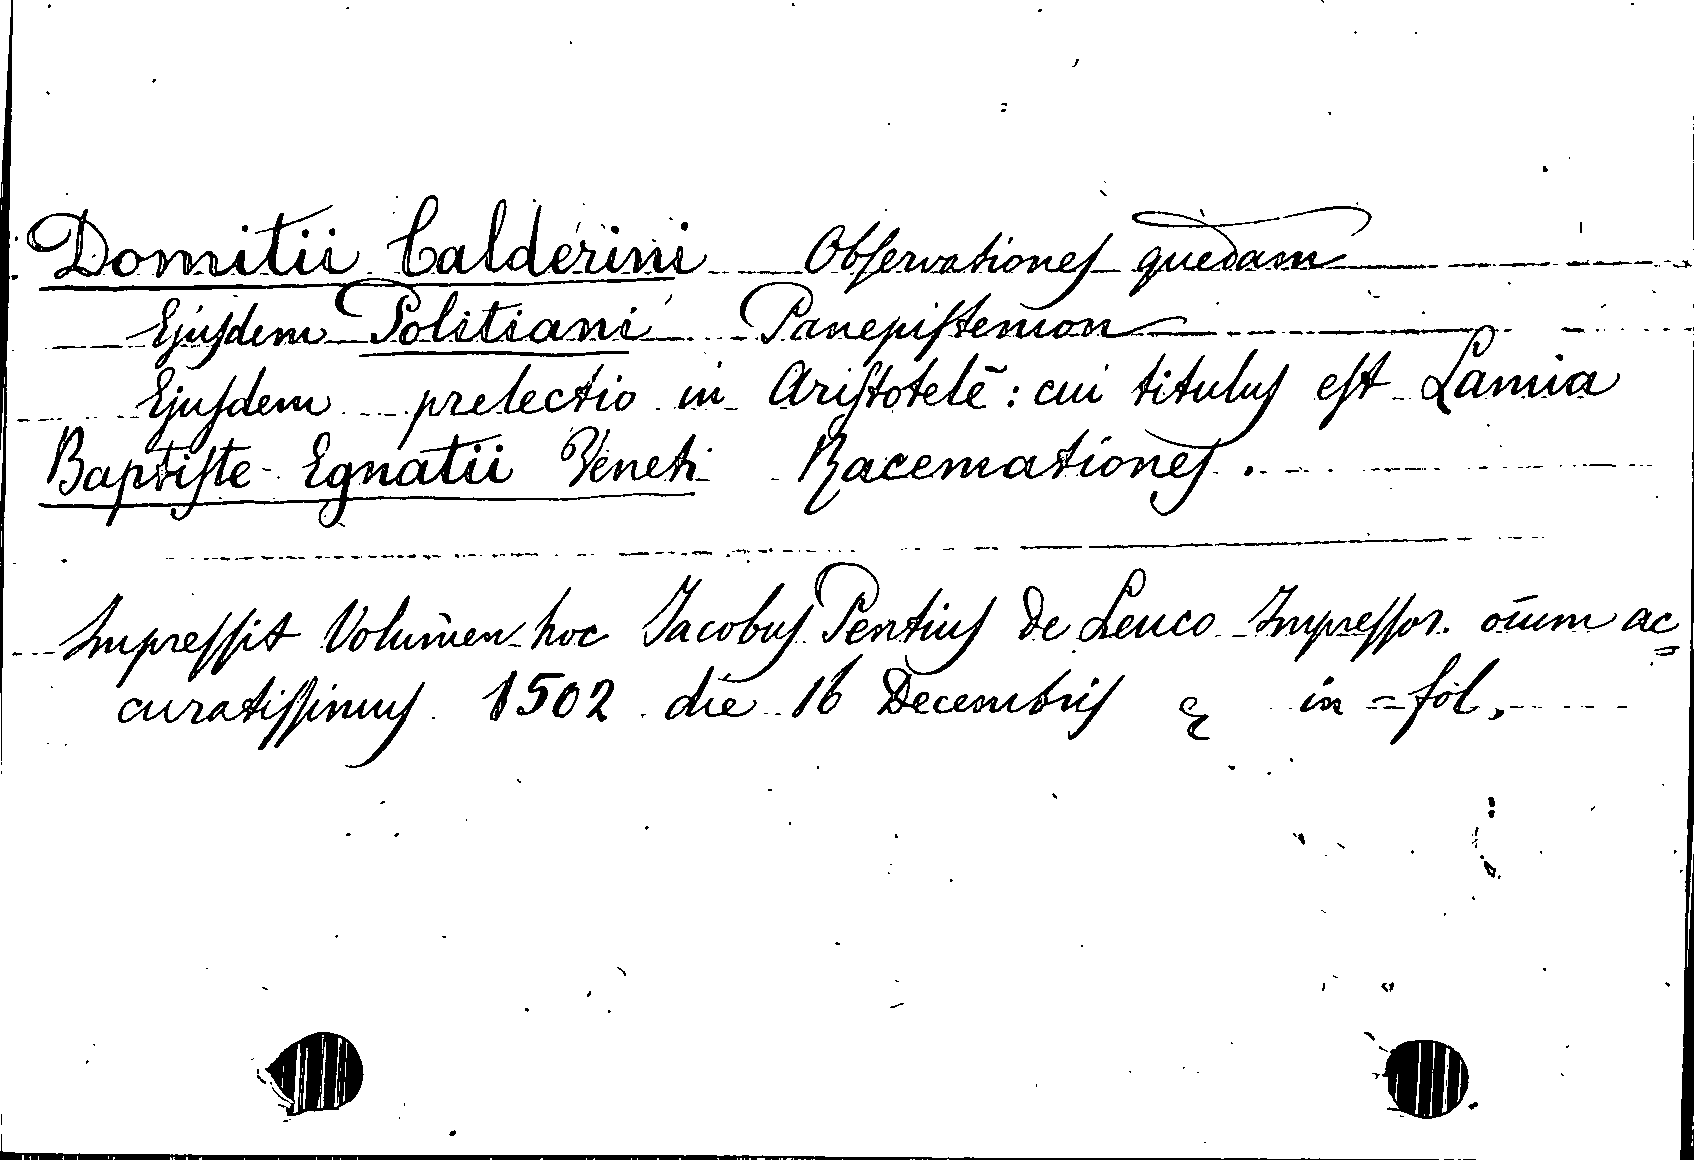 Domitii Calderini Obſervationeſ quedam
Ejuſdem Politiani Panepiſtemon
Ejuſdem prelectio in Ariſtotelē: cui tituluſ eſt Lamia
Baptiſte Egnatii Veneti Racemationeſ.
Impreſſit Volumen hoc Jacobuſ Pentiuſ de Leuco Impreſſor. oīum ac=
curatiſſimuſ 1502 die 16 Decembriſ in=fol.